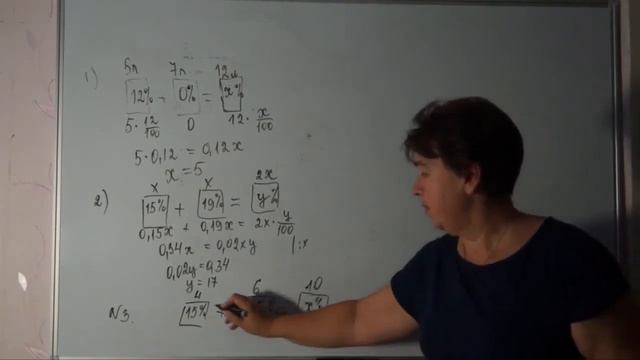 5л 7л 12л
1) 12% + 0% = x%
5·12/100 0 12·x/100
5·0,12 = 0,12x
x = 5
x x 2x
2) 15% + 19% = y%
0,15x + 0,19x = 2x·y/100
0,34x = 0,02xy |:x
0,02y = 0,34
y = 17
4 6 10
N3. 15% x%